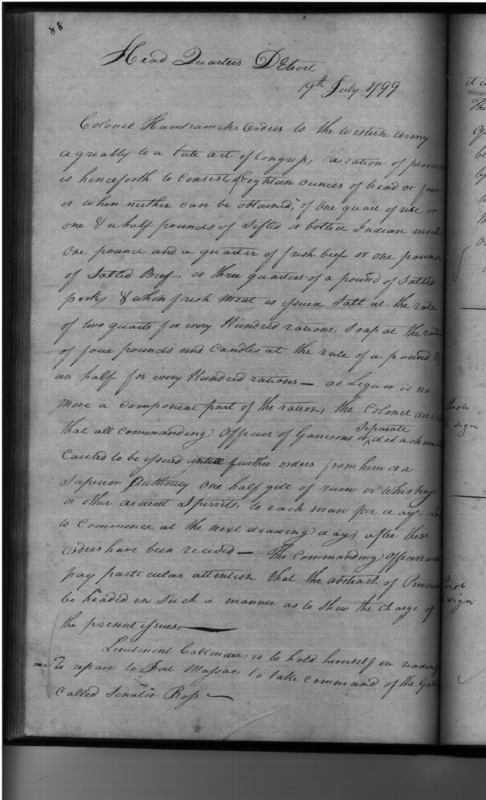 88
Head Quarters Detroit
19th July 1799
Colonel Hamtramcks Orders to the Western Army
agreably to a late act of Congress, a ration of
is henceforth to consist of Eighteen ounces of bread or flour
or when neither can be obtained, of one quart of rice or
one & a half pounds of Sifted or bolted Indian meal
One pound and a quarter of fresh beef or one pound
of Salted Beef, or three quarters of a pound of Salted
pork, & when fresh meat is issued Salt at the rate
of two quarts for every Hundred rations, Soap at the rate
of four pounds and Candles at the rate of a pound &
an half for every Hundred rations — as Liquor is no
more a component part of the ration, the Colonel
that all commanding Officers of Garrisons Separate
Caused to be issued untill further orders from him or a
Superior Authority one half gill of rum or Whiskey
or other ardent Spirits, to each man per day,
to Commence at the next drawing day, after these
orders have been recived — The Commanding Officers
pay particular attention that the abstract of
be headed in Such a manner as to Shew the Charge of
the present issues —
Lieutenant is to hold himself in
to repair to Fort Massac to take command of the
Called Senator Ross —